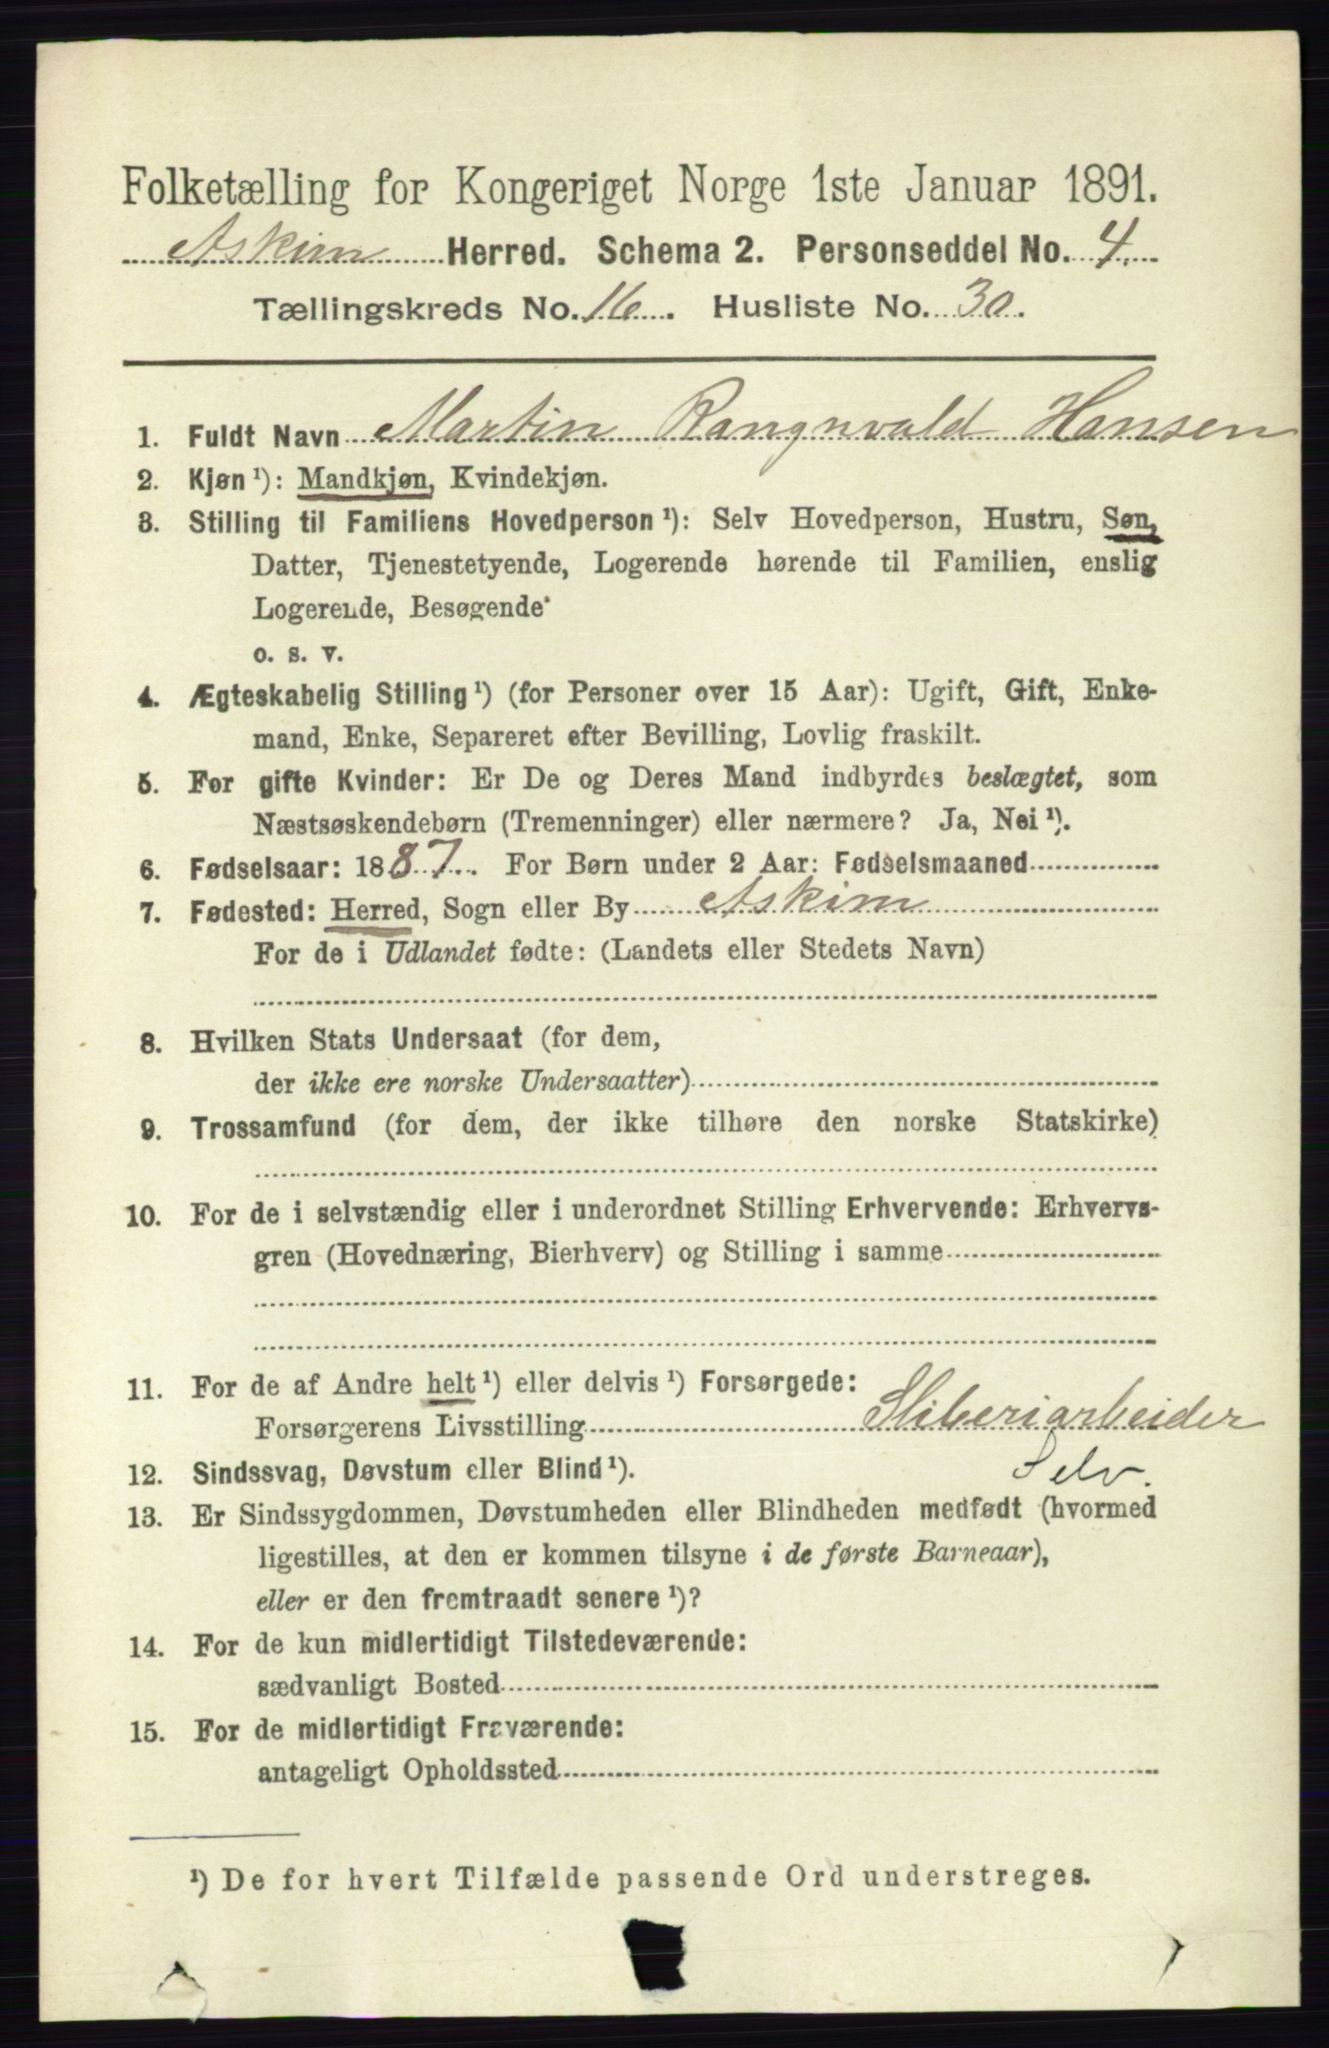 Folketælling for Kongeriget Norge 1ste Januar 1891.
Askim Herred. Schema 2. Personseddel No. 4.
Tællingskreds No. 16. Husliste No. 30.
1. Fuldt Navn Martin Rangnvald Hansen
2. Kjøn ¹): Mandkjøn, Kvindekjøn.
3. Stilling til Familiens Hovedperson ¹): Selv Hovedperson, Hustru, Søn,
Datter, Tjenestetyende, Logerende hørende til Familien, enslig
Logerende, Besøgende
o. s. v.
4. Ægteskabelig Stilling ¹) (for Personer over 15 Aar): Ugift, Gift, Enke-
mand, Enke, Separeret efter Bevilling, Lovlig fraskilt.
5. For gifte Kvinder: Er De og Deres Mand indbyrdes beslægtet, som
Næstsøskendebørn (Tremenninger) eller nærmere? Ja, Nei ¹).
6. Fødselsaar: 1887. For Børn under 2 Aar: Fødselsmaaned
7. Fødested: Herred, Sogn eller By Askim
For de i Udlandet fødte: (Landets eller Stedets Navn)
8. Hvilken Stats Undersaat (for dem,
der ikke ere norske Undersaatter)
9. Trossamfund (for dem, der ikke tilhøre den norske Statskirke)
10. For de i selvstændig eller i underordnet Stilling Erhvervende: Erhvervs-
gren (Hovednæring, Bierhverv) og Stilling i samme
11. For de af Andre helt ¹) eller delvis ¹) Forsørgede:
Forsørgerens Livsstilling Sliberiarbeider
12. Sindssvag, Døvstum eller Blind ¹). Selv.
13. Er Sindssygdommen, Døvstumheden eller Blindheden medfødt (hvormed
ligestilles, at den er kommen tilsyne i de første Barneaar),
eller er den fremtraadt senere ¹)?
14. For de kun midlertidigt Tilstedeværende:
sædvanligt Bosted
15. For de midlertidigt Fraværende:
antageligt Opholdssted
¹) De for hvert Tilfælde passende Ord understreges.